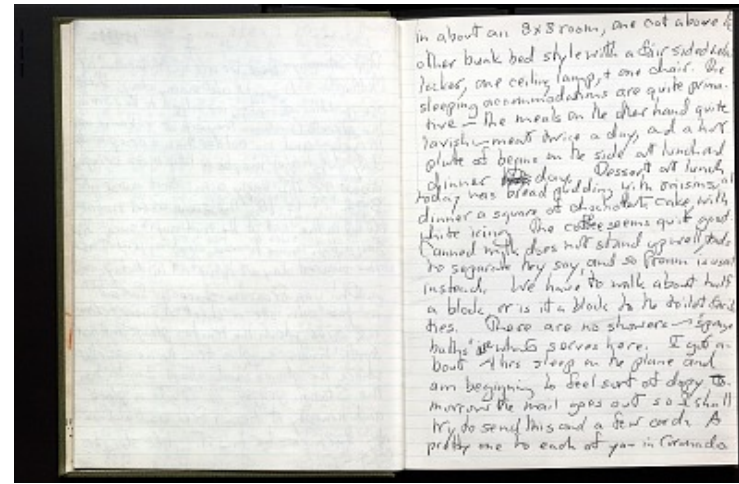 in about an 8x8 room, one cot above
other bunk bed style with a fair sided
locker, one ceiling lamp, + one chair. The
sleeping accommodations are quite primi-
tive — the meals on the other hand quite
lavish — meat twice a day, and a hot
plate of beans on the side at lunch and
dinner day. Dessert at lunch
today was bread pudding with raisins, at
dinner a square of chocolate cake with
white icing. The coffee seems quite good.
Canned milk does not stand up well,
to separate they say, and so Pream is used
instead. We have to walk about half
a block, or is it a block to the toilet facili
ties. There are no showers — "sponge
baths" is what serves here. I got a-
bout 4 hrs sleep on the plane and
am beginning to feel sort of dopy. To-
morrow the mail goes out so I shall
try to send this and a few cards. A
pretty one to each of you in Coronado